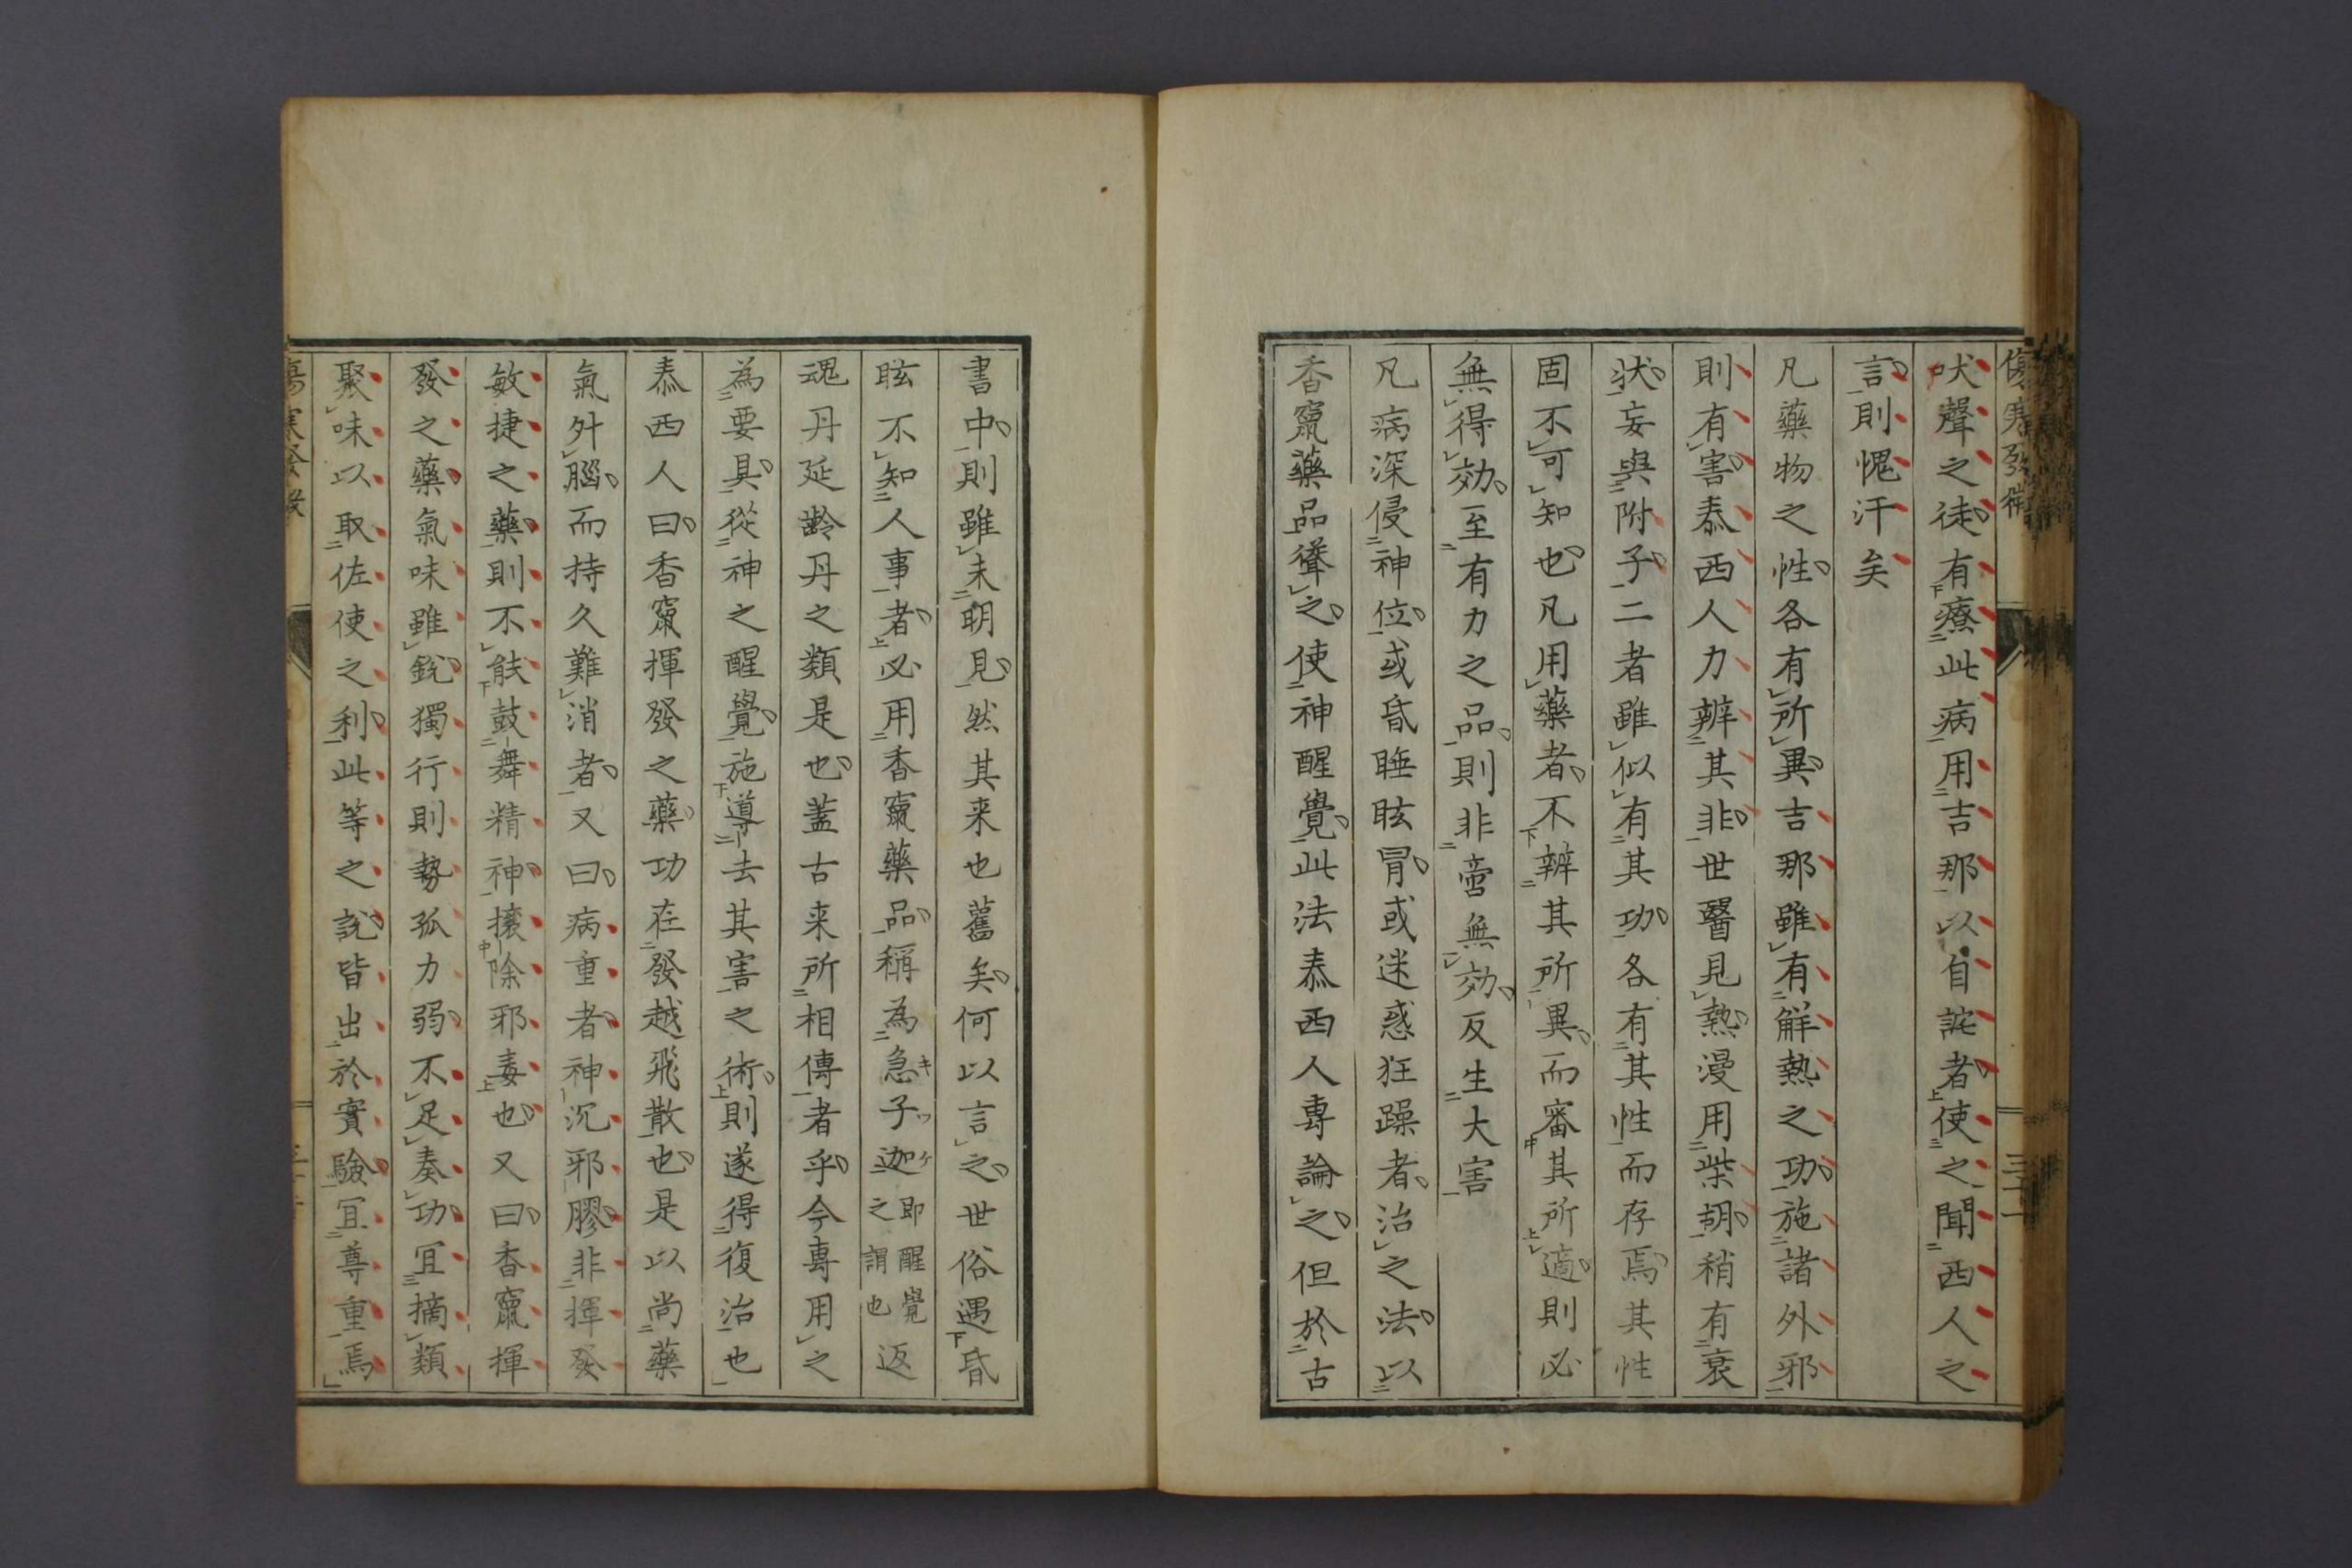 吠聲之徒有療此病用吉那以自詫者使之聞西人之
言則愧汗矣
凡藥物之性各有所異吉那雖有解熱之功施諸外邪
則有害泰西人力辨其非世醫見熱漫用柴胡稍有衰
状妄與附子二者雖似有其功各有其性而存焉其性
固不可知也凡用藥者不辨其所異而審其所適則必
無得効至有力之品則非啻無効反生大害
凡病深侵神位或昏睡眩冒或迷惑狂躁者治之法以
香竄藥品聳之使神醒覺此法泰西人專論之但於古
書中則雖未明見然其来也舊矣何以言之世俗遇昏
眩不知人事者必用香竄藥品稱為急子迦即醒覺之謂也返
魂丹延齡丹之類是也蓋古来所相傳者乎今專用之
為要具從神之醒覺施導去其害之術則遂得復治也
泰西人曰香竄揮發之藥功在發越飛散也是以尚藥
氣外腦而持久難消者又曰病重者神沉邪膠非揮發
敏捷之藥則不能鼓舞精神攘除邪毒也又曰香竄揮
發之藥氣味雖鋭獨行則勢孤力弱不足奏功宜摘類
聚味以取佐使之利此等之説皆出於實驗宜尊重焉